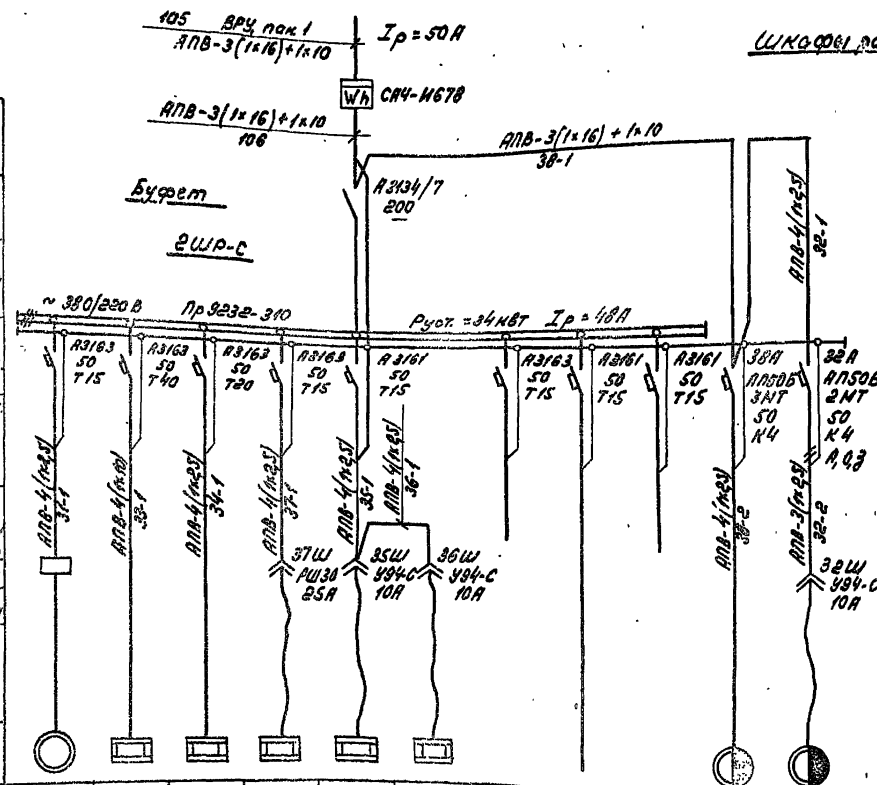 105 ВРУ пан 1
АПВ-3(1×16)+1×10
Iр=50А
Шкафы
Wh
СА4-И678
АПВ-3(1×16)+1×10
106
АПВ-3(1×16)+1×10
38-1
А3134/7
200
Буфет
2ШР-С
АПВ-4(1×2,5)
32-1
~ 380/220В
Пр9232-310
Руст.=34кВт
Iр=48А
А3163
50
Т15
А3163
50
Т40
А3163
50
Т20
А3163
50
Т15
А3161
50
Т15
А3163
50
Т15
А3161
50
Т15
А3161
50
Т15
38А
АП50Б
3МТ
50
К4
32А
АП50Б
2МТ
50
К4
А,0,3
АПВ-4(1×2,5)
31-1
АПВ-4(1×10)
33-1
АПВ-4(1×2,5)
34-1
АПВ-4(1×2,5)
37-1
АПВ-4(1×2,5)
35-1
АПВ-4(1×2,5)
36-1
АПВ-4(1×2,5)
38-2
АПВ-3(1×2,5)
32-2
37Ш
РШ30
25А
35Ш
У94-С
10А
36Ш
У94-С
10А
32Ш
У94-С
10А